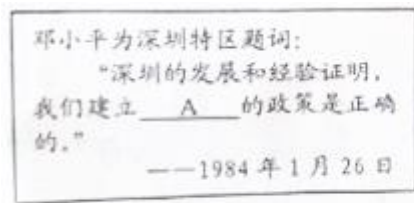 邓小平为深圳特区题词：
“深圳的发展和经验证明，
我们建立 A 的政策是正确
的。”
——1984年1月26日